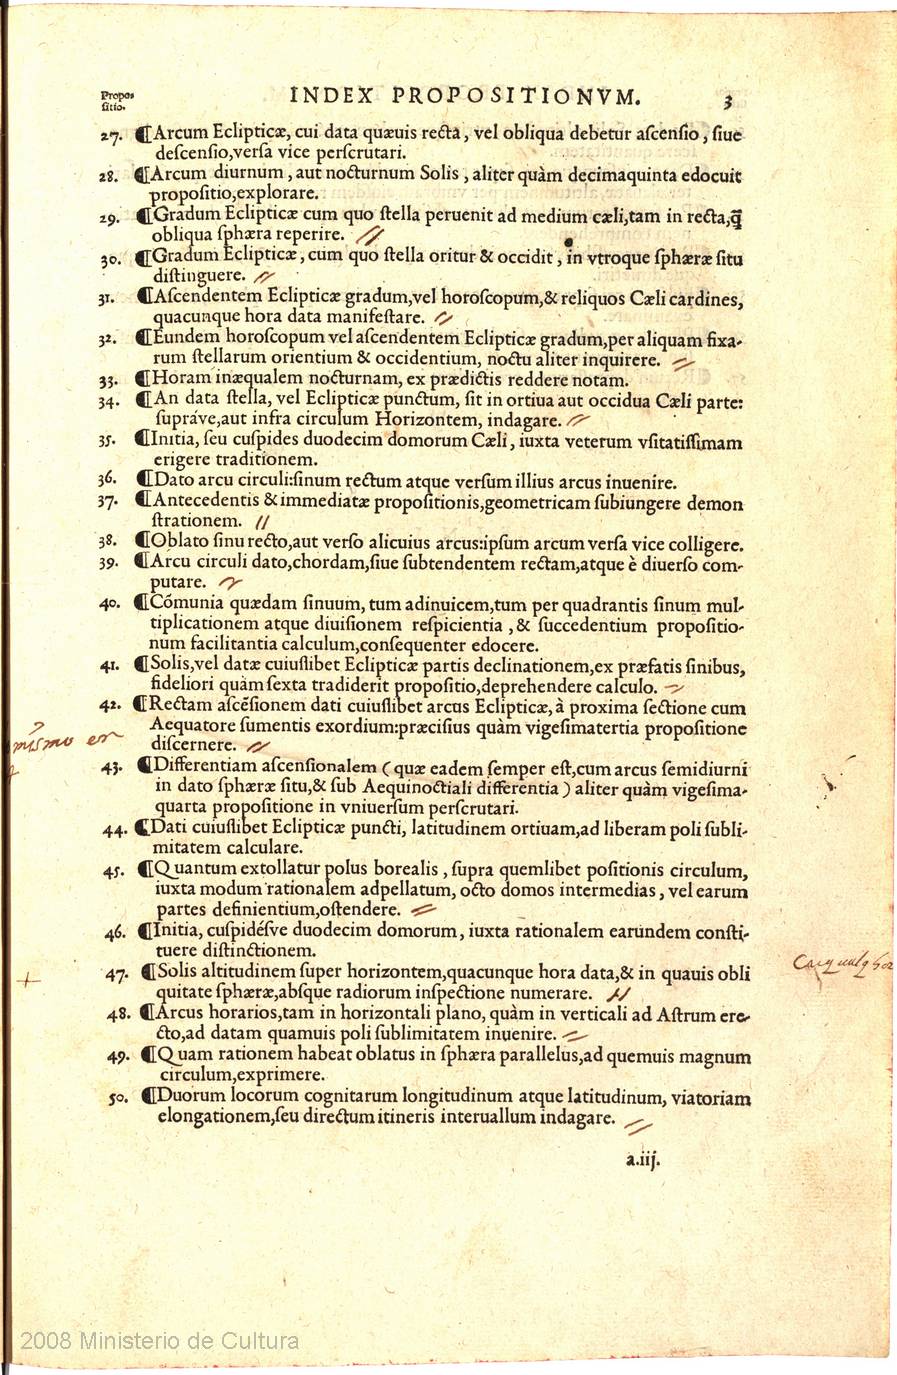 Propos
sitio.
INDEX PROPOSITIONVM. 3
27. ¶Arcum Eclipticæ, cui data quæuis recta, vel obliqua debetur ascensio, siue
descensio,versa vice perscrutari.
28. ¶Arcum diurnum, aut nocturnum Solis, aliter quàm decimaquinta edocuit
propositio,explorare.
29. ¶Gradum Eclipticæ cum quo stella peruenit ad medium cæli,tam in recta,q̃
obliqua sphæra reperire.
30. ¶Gradum Eclipticæ, cum quo stella oritur & occidit, in vtroque sphæræ situ
distinguere.
31. ¶Ascendentem Eclipticæ gradum,vel horoscopum,& reliquos Cæli cardines,
quacunque hora data manifestare.
32. ¶Eundem horoscopum vel ascendentem Eclipticæ gradum,per aliquam fixa-
rum stellarum orientium & occidentium, noctu aliter inquirere.
33. ¶Horam inæqualem nocturnam, ex prædictis reddere notam.
34. ¶An data stella, vel Eclipticæ punctum, sit in ortiua aut occidua Cæli parte:
supráve,aut infra circulum Horizontem, indagare.
35. ¶Initia, seu cuspides duodecim domorum Cæli, iuxta veterum vsitatissimam
erigere traditionem.
36. ¶Dato arcu circuli:sinum rectum atque versum illius arcus inuenire.
37. ¶Antecedentis & immediatæ propositionis,geometricam subiungere demon
strationem.
38. ¶Oblato sinu recto,aut verso alicuius arcus:ipsum arcum versa vice colligere.
39. ¶Arcu circuli dato,chordam,siue subtendentem rectam,atque è diuerso com-
putare.
40. ¶Cómunia quædam sinuum, tum adinuicem,tum per quadrantis sinum mul-
tiplicationem atque diuisionem respicientia, & succedentium propositio-
num facilitantia calculum,consequenter edocere.
41. ¶Solis,vel datæ cuiuslibet Eclipticæ partis declinationem,ex præfatis sinibus,
fideliori quàm sexta tradiderit propositio,deprehendere calculo.
42. ¶Rectam ascẽsionem dati cuiuslibet arcus Eclipticæ, à proxima sectione cum
Aequatore sumentis exordium:præcisius quàm vigesimatertia propositione
discernere.
mismo en
43. ¶Differentiam ascensionalem (quæ eadem semper est,cum arcus semidiurni
in dato sphæræ situ,& sub Aequinoctiali differentia) aliter quàm vigesima-
quarta propositione in vniuersum perscrutari.
44. ¶Dati cuiuslibet Eclipticæ puncti, latitudinem ortiuam,ad liberam poli subli-
mitatem calculare.
45. ¶Quantum extollatur polus borealis, supra quemlibet positionis circulum,
iuxta modum rationalem adpellatum, octo domos intermedias, vel earum
partes definientium,ostendere.
46. ¶Initia, cuspidésve duodecim domorum, iuxta rationalem earundem consti-
tuere distinctionem.
47. ¶Solis altitudinem super horizontem,quacunque hora data,& in quauis obli
quitate sphæræ,absque radiorum inspectione numerare.
48. ¶Arcus horarios,tam in horizontali plano, quàm in verticali ad Astrum ere-
cto,ad datam quamuis poli sublimitatem inuenire.
49. ¶Quam rationem habeat oblatus in sphæra parallelus,ad quemuis magnum
circulum,exprimere.
50. ¶Duorum locorum cognitarum longitudinum atque latitudinum, viatoriam
elongationem,seu directum itineris interuallum indagare.
a.iij.
2008 Ministerio de Cultura